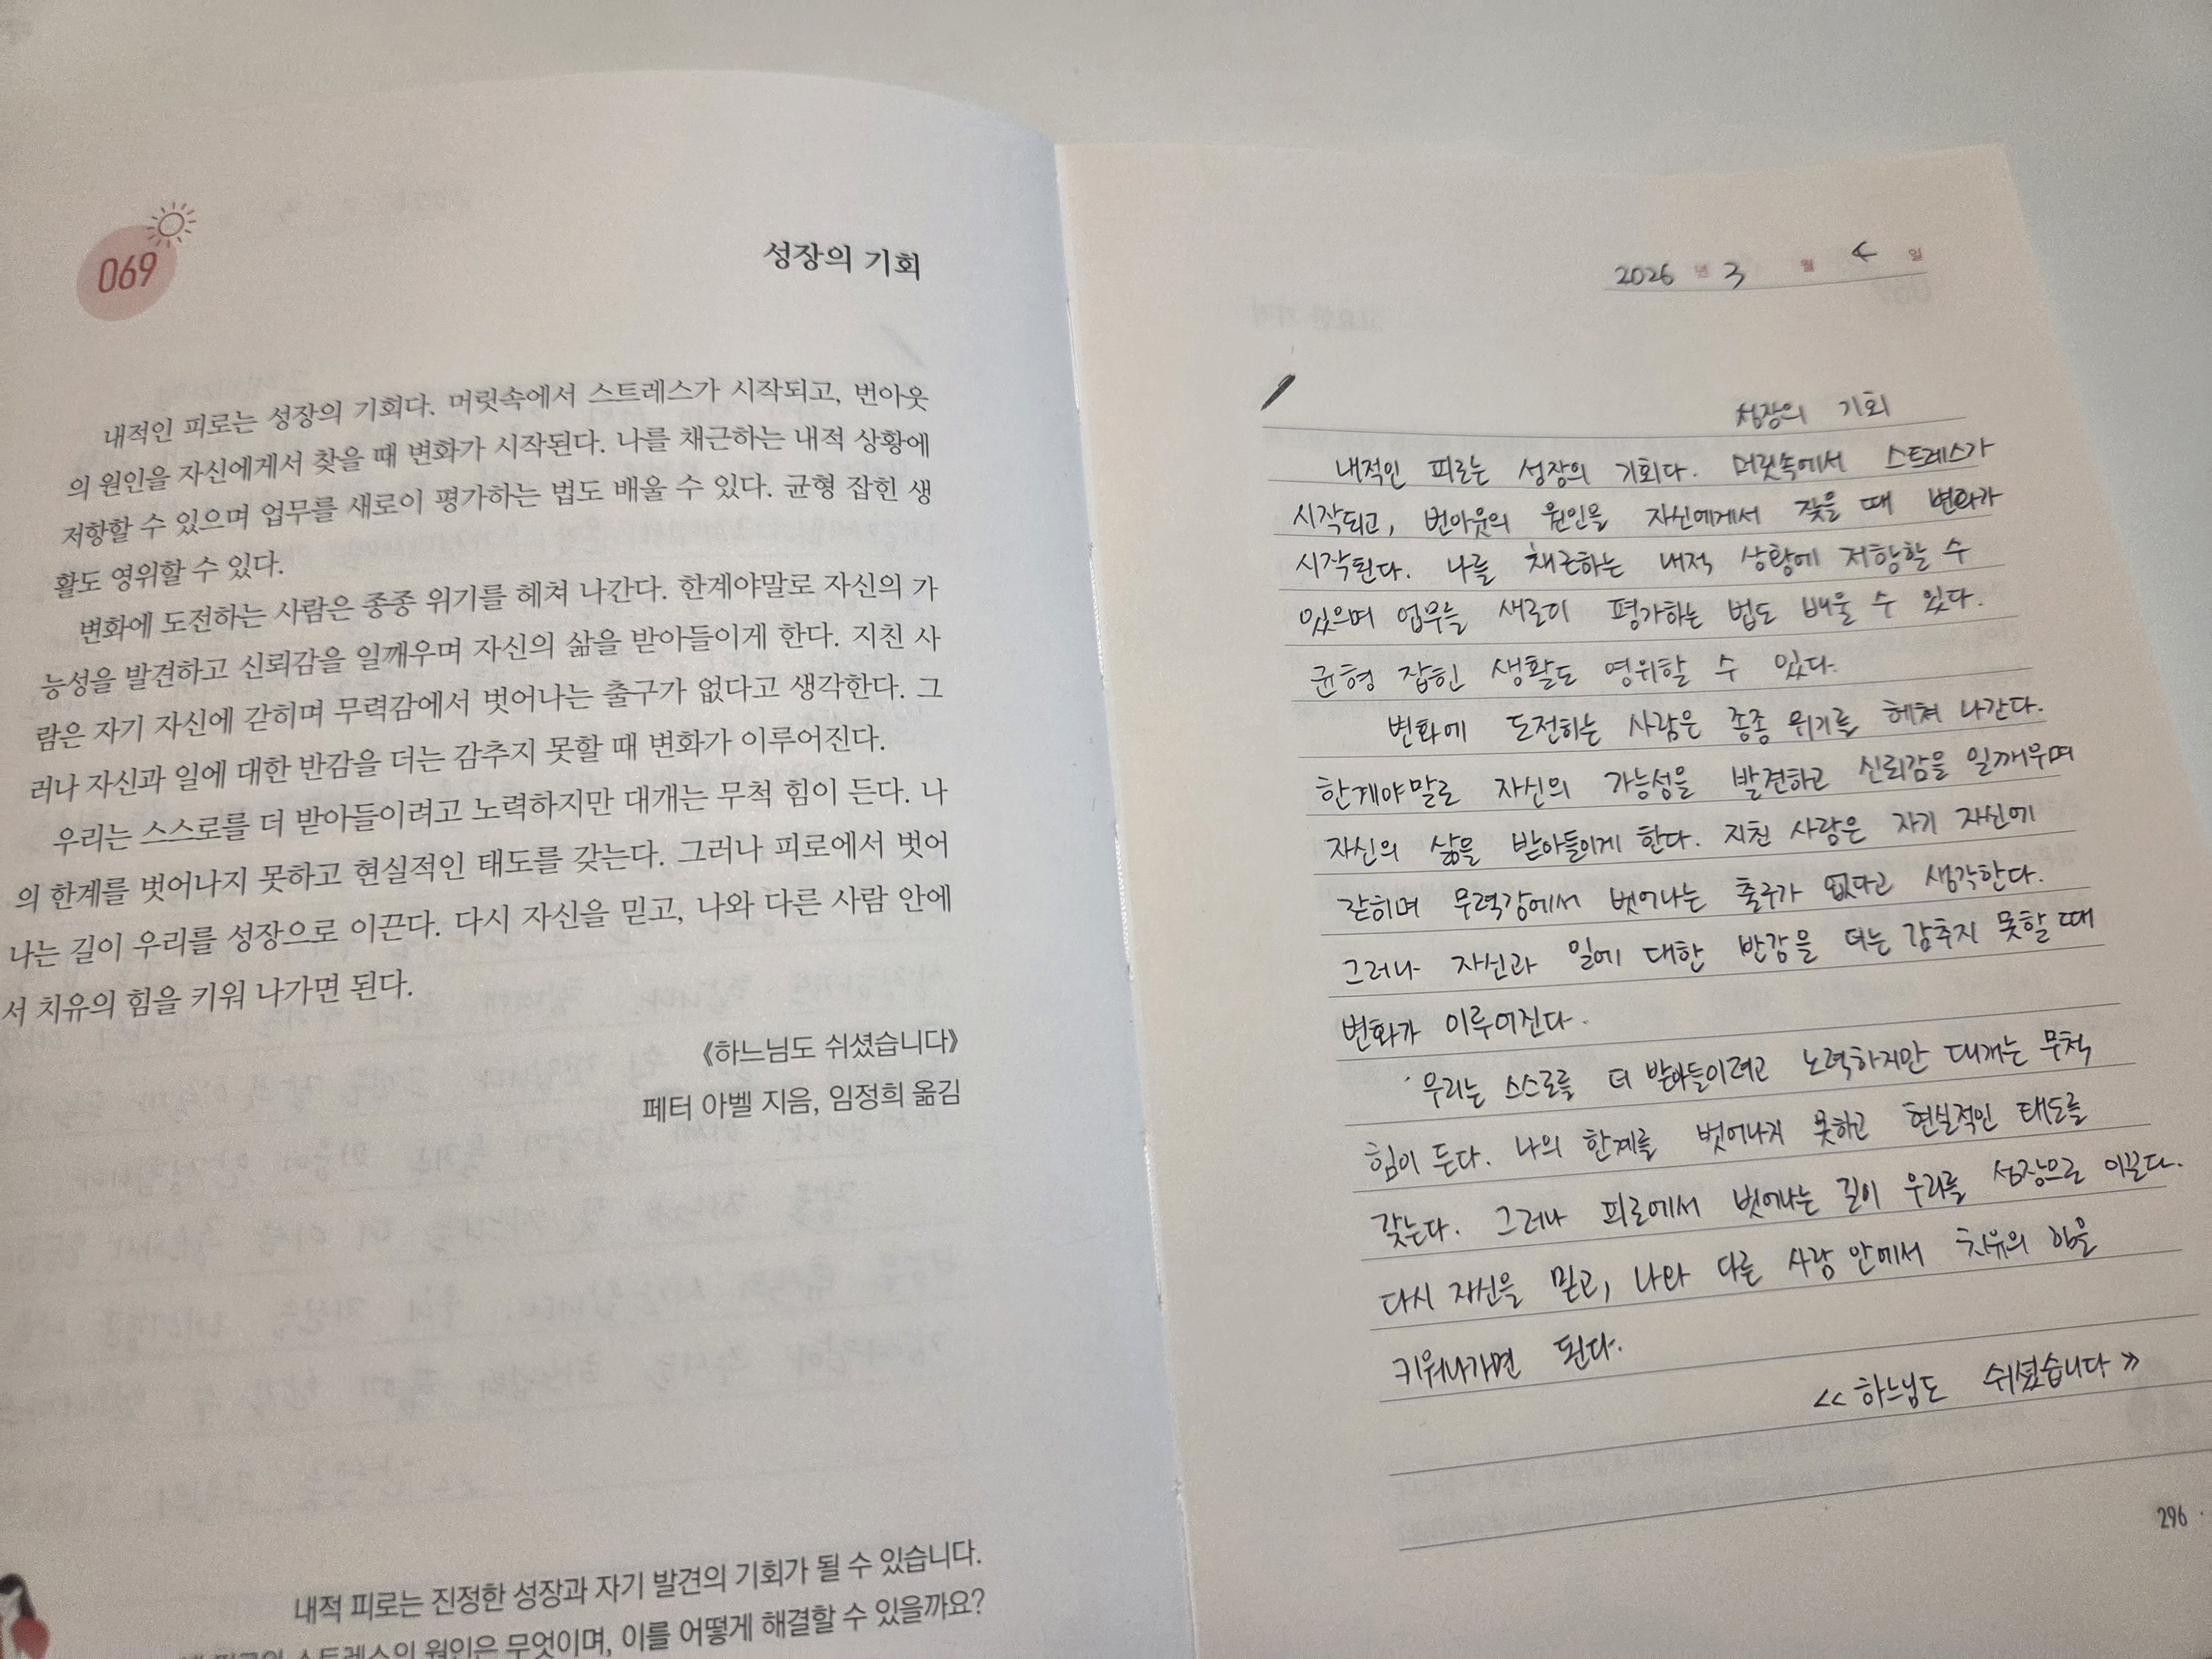 069
성장의 기회
내적인 피로는 성장의 기회다. 머릿속에서 스트레스가 시작되고, 번아웃
의 원인을 자신에게서 찾을 때 변화가 시작된다. 나를 채근하는 내적 상황에
저항할 수 있으며 업무를 새로이 평가하는 법도 배울 수 있다. 균형 잡힌 생
활도 영위할 수 있다.
변화에 도전하는 사람은 종종 위기를 헤쳐 나간다. 한계야말로 자신의 가
능성을 발견하고 신뢰감을 일깨우며 자신의 삶을 받아들이게 한다. 지친 사
람은 자기 자신에 갇히며 무력감에서 벗어나는 출구가 없다고 생각한다. 그
러나 자신과 일에 대한 반감을 더는 감추지 못할 때 변화가 이루어진다.
우리는 스스로를 더 받아들이려고 노력하지만 대개는 무척 힘이 든다. 나
의 한계를 벗어나지 못하고 현실적인 태도를 갖는다. 그러나 피로에서 벗어
나는 길이 우리를 성장으로 이끈다. 다시 자신을 믿고, 나와 다른 사람 안에
서 치유의 힘을 키워 나가면 된다.
《하느님도 쉬셨습니다》
페터 아벨 지음, 임정희 옮김
내적 피로는 진정한 성장과 자기 발견의 기회가 될 수 있습니다.
스트레스의 원인은 무엇이며, 이를 어떻게 해결할 수 있을까요?
2026 년 3 월 4 일
성장의 기회
내적인 피로는 성장의 기회다. 머릿속에서 스트레스가
시작되고, 번아웃의 원인을 자신에게서 찾을 때 변화가
시작된다. 나를 채근하는 내적 상황에 저항할 수
있으며 업무를 새로이 평가하는 법도 배울 수 있다.
균형 잡힌 생활도 영위할 수 있다.
변화에 도전하는 사람은 종종 위기를 헤쳐 나간다.
한계야말로 자신의 가능성을 발견하고 신뢰감을 일깨우며
자신의 삶을 받아들이게 한다. 지친 사람은 자기 자신에
갇히며 무력감에서 벗어나는 출구가 없다고 생각한다.
그러나 자신과 일에 대한 반감을 더는 감추지 못할 때
변화가 이루어진다.
우리는 스스로를 더 받아들이려고 노력하지만 대개는 무척
힘이 든다. 나의 한계를 벗어나지 못하고 현실적인 태도를
갖는다. 그러나 피로에서 벗어나는 길이 우리를 성장으로 이끈다.
다시 자신을 믿고, 나와 다른 사람 안에서 치유의 힘을
키워나가면 된다.
<<하느님도 쉬셨습니다>>
296